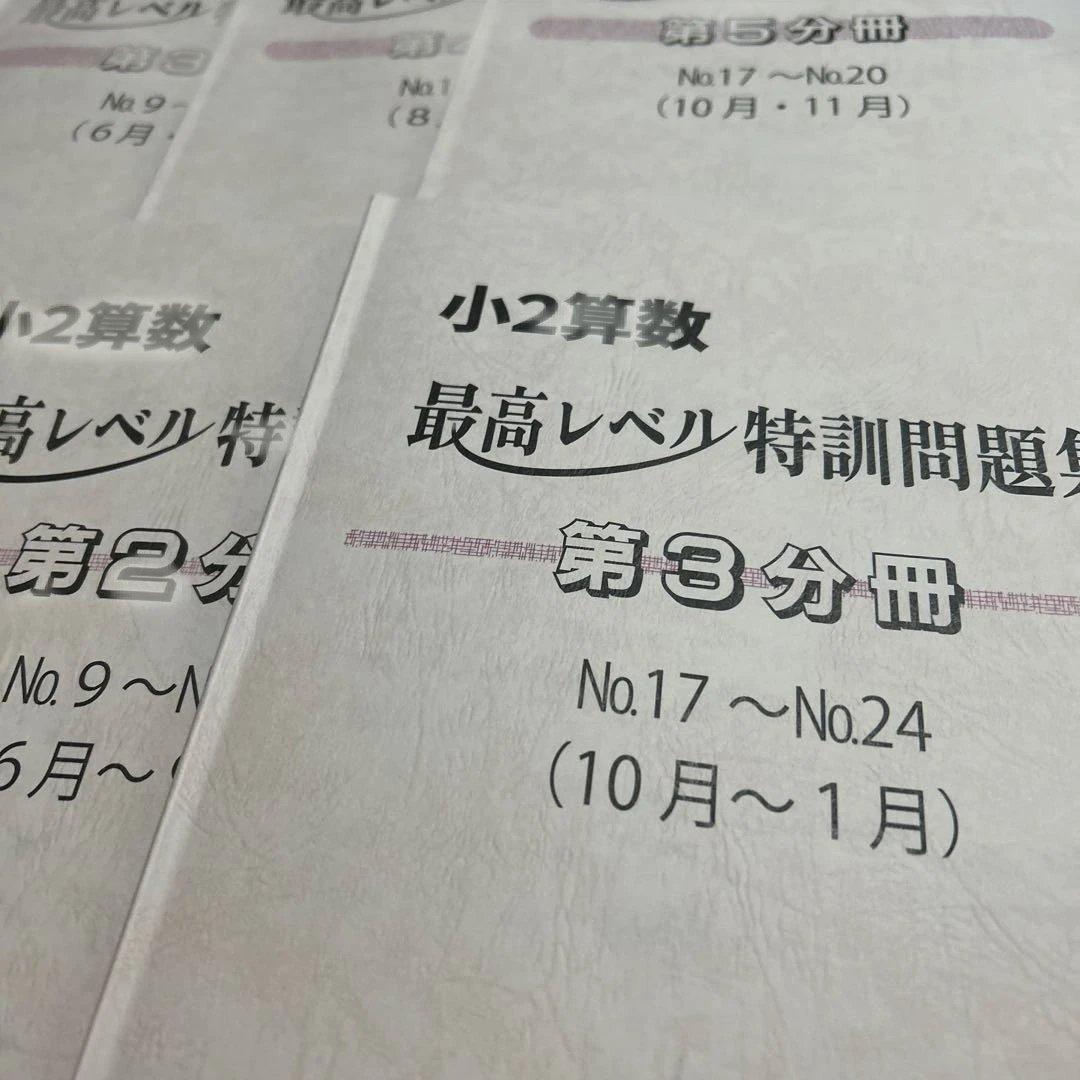 最高レベル
第3
No.9～
(6月・
最高レベル
第
No.1
(8
第5分冊
No.17 ～No.20
(10月・11月)
小2算数
高レベル 特
第2分
No.9～N
6月～
小2算数
最高レベル 特訓問題集
第3分冊
No.17 ～No.24
(10月～1月)